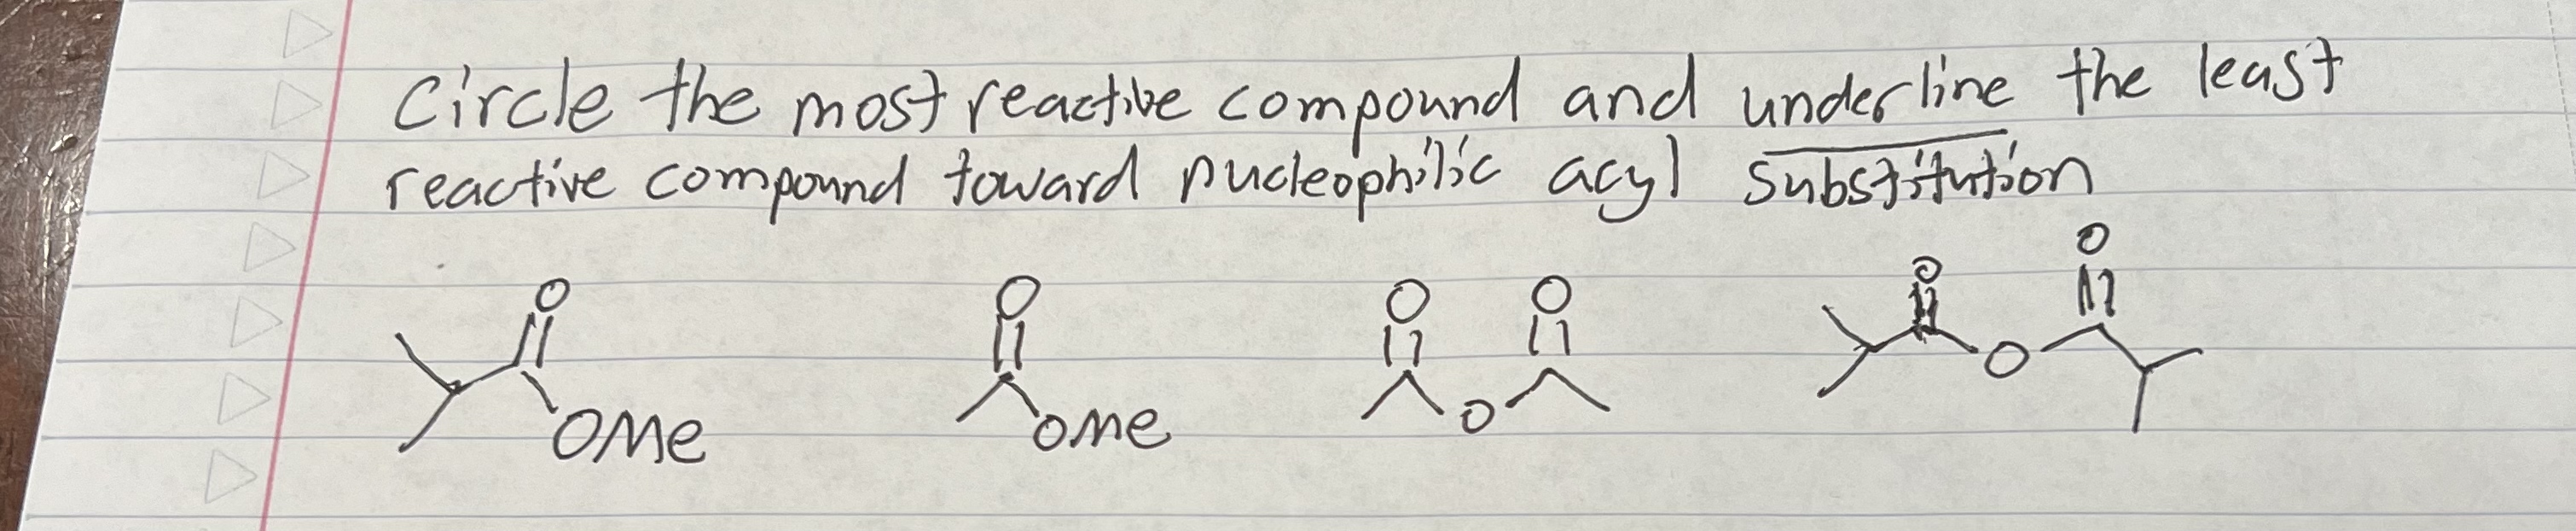 Circle the most reactive compound and underline the least
reactive compound toward nucleophilic acyl substitution
O O O O O O
OMe OMe O O